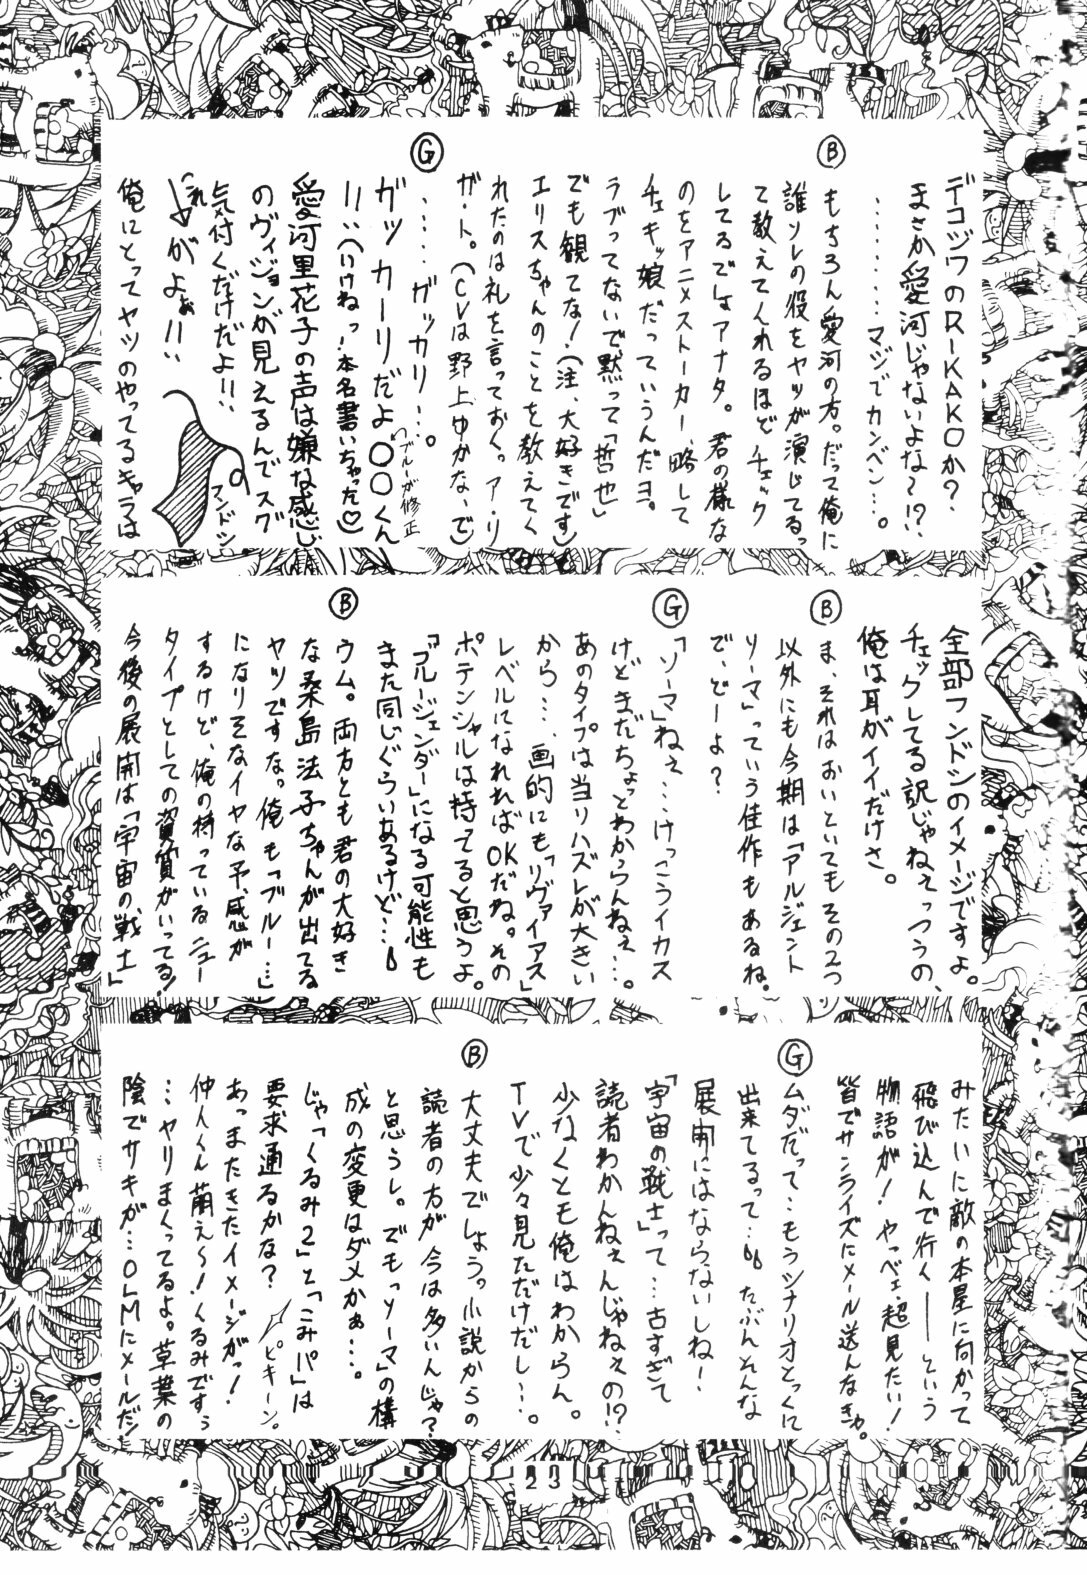 デコジワのRIKAKOか?
まさか愛河じゃないよな〜!?、
………マジでカンベン…。
Ⓑ もちろん愛河の方。だって俺に
誰ソレの役をヤツが演じてるっ
て教えてくれるほどチェック
してるでしょアナタ。君の様な
のをアニメストーカー、略して
チェキッ娘だっていうんだヨ。
ラブってないで黙って「哲也」
でも観てな!(注、大好きです)
エリスちゃんのことを教えてく
れたのは礼を言っておく。ア・リ
ガ・ト。(CVは野上ゆかな、で)
Ⓖ ……ガッカリ…。
ガッカーリだよ〇〇くん
ブルーが修正
!!、(いけねっ!本名書いちゃった♡)
愛河里花子の声は嫌な感じ
のヴィジョンが見えるんでスグ
気付くだけだよ!!、
これ
がよぉ!!、
フンドシ
俺にとってヤツのやってるキャラは
全部フンドシのイメージですよ。
チェックしてる訳じゃねぇっつうの、
俺は耳がイイだけさ。
Ⓑ ま、それはおいといてもその2つ
以外にも今期は「アルジェント
ソーマ」っていう佳作もあるね。
で、どーよ?
Ⓖ 「ソーマ」ねぇ…けっこうイカス
けどまだちょっとわからんねぇ…。
あのタイプは当りハズレが大きい
から…、画的にも「リヴァイアス」
レベルになれればOKだね。その
ポテンシャルは持てると思うよ。
「ブルージェンダー」になる可能性も
また同じぐらいあるけど…
Ⓑ ウム。両方とも君の大好き
な桑島法子ちゃんが出てる
ヤツですな。俺も「ブルー…」
になりそなイヤな予感が
するけど、俺の持っているニュー
タイプとしての資質がいってる!
今後の展開は「宇宙の戦士」
みたいに敵の本星に向かって
飛び込んで行く――という
物語が!やっべェ、超見たい!
皆でサンライズにメール送んなきゃ。
Ⓖ ムダだって…もうシナリオとっくに
出来てるって…たぶんそんな
展開にはならないしね!
「宇宙の戦士」って…古すぎて
読者わかんねぇんじゃねぇの!?
少なくとも俺はわからん。
TVで少々見ただけだし…。
Ⓑ 大丈夫でしょう。小説からの
読者の方が今は多いんじゃ?
と思うし。でもっ「ソーマ」の構
成の変更はダメかぁ…。
じゃ「くるみ2」と「こみパ」は
要求通るかな?
ピキーン。
あっまたきたイメージがっ!
仲人くん萌え〜!くるみですぅ
…ヤリまくってるよ。草葉の
陰でサキが…OLMにメールだ!
23